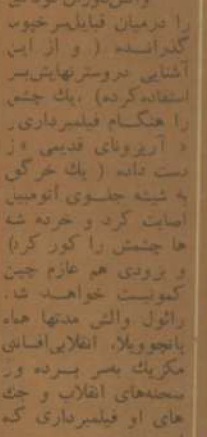 را درمیان قبایل سرخپوست
گذرانـــده ( و از ایـن
آشنایی دروسترنهایش بــر
استفاده کرده) ، یك چشم
را هنگــام فیلمبرداری
د آریزونای قدیمی » ز
دست داده ( یك خرگوش
به شیشه جلــوی اتومبیل
اصابت کرد و خرده شه
ها چشمش را کور کرد)
و بزودی هم عازم چین
کمونیست خواهــد شد.
رائول والش مدتها همراه
پانچوویلا، انقلابی افسانی
مکزیك بسر بــرده و
صحنه‌های انقلاب و جنگ
های او فیلمبرداری کـر